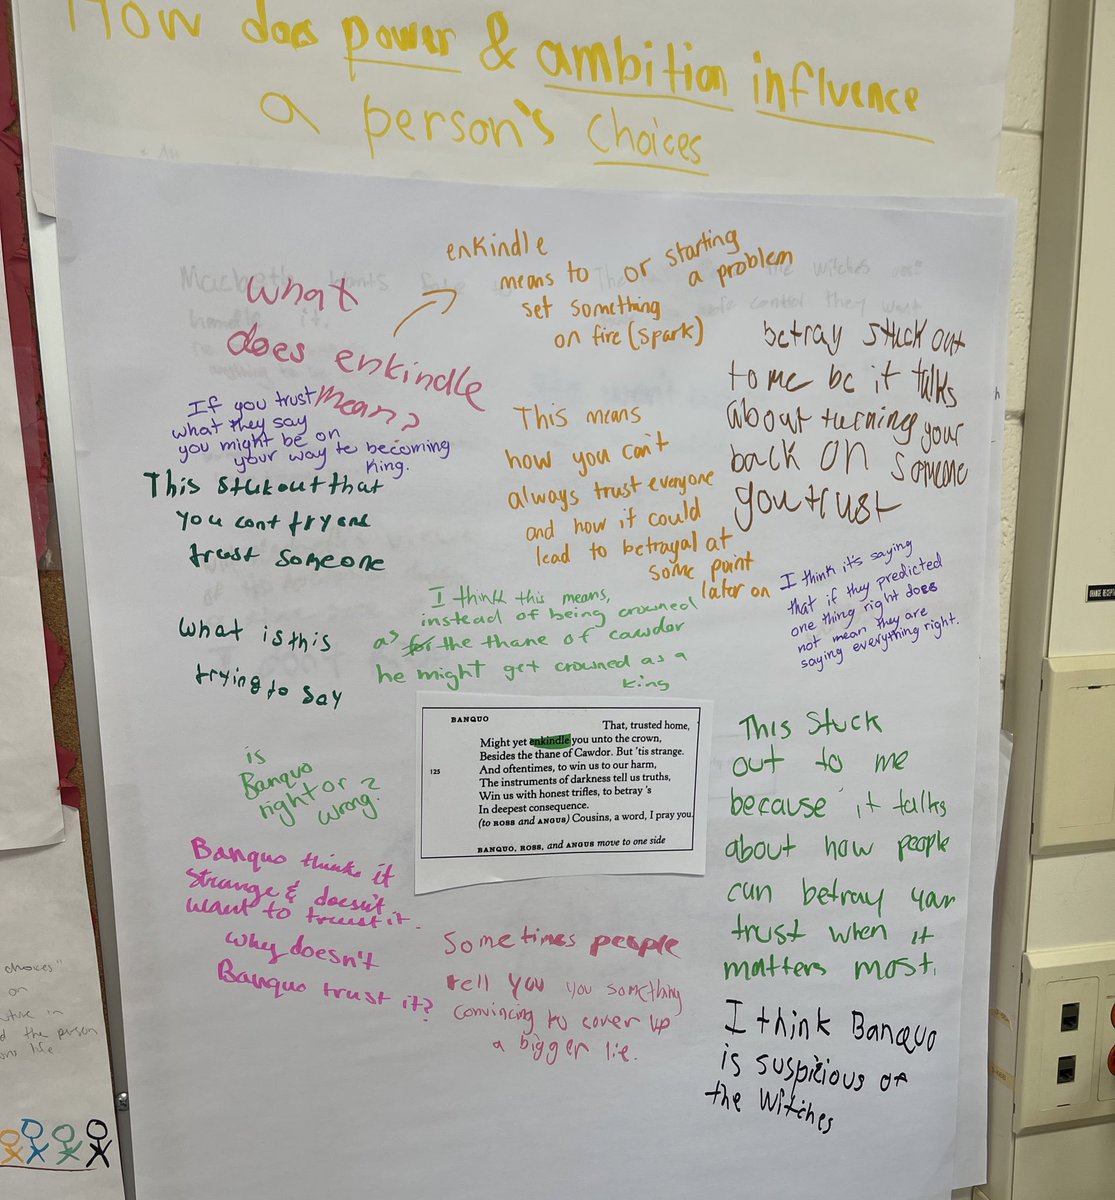 How does power & ambition influence
a person's choices
enkindle
means to
set something
on fire (spark)
or starting
a problem
what
does enkindle
mean?
If you trust
what they say
you might be on
your way to becoming
king.
This stuk out that
you cont fry and
trust someone
what is this
trying to say
This means
how you can't
always trust everyone
and how it could
lead to betrayal at
some point
later on
betray stuck out
to me bc it talks
about turning your
back on someone
you trust
I think it's saying
that if they predicted
one thing right does
not mean they are
saying everything right.
I think this means,
instead of being crowned
as for the thane of cawdor
he might get crowned as a
king
BANQUO
That, trusted home,
Might yet enkindle you unto the crown,
Besides the thane of Cawdor. But 'tis strange.
125 And oftentimes, to win us to our harm,
The instruments of darkness tell us truths,
Win us with honest trifles, to betray 's
In deepest consequence.
(to ROSS and ANGUS) Cousins, a word, I pray you.
BANQUO, ROSS, and ANGUS move to one side
is
Banquo
right or
wrong?
Banquo thinks it
strange & doesn't
want to truust it.
why doesn't
Banquo trust it?
Sometimes people
tell you you something
convincing to cover up
a bigger lie.
This stuck
out to me
because it talks
about how people
can betray your
trust when it
matters most.
I think Banquo
is suspicious of
the witches
choices"
on
in
the person
life